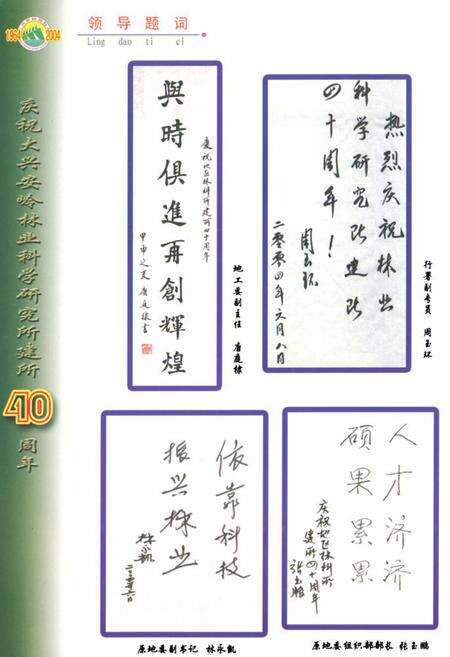 1964 2004
领导题词
Ling dao ti ci
庆祝大兴安岭林业科学研究所建所
40
周年
與時俱進再創輝煌
慶祝地区林科所建所四十周年
甲申之夏 唐庭棣書
地工委副主任 唐庭棣
热烈庆祝林业
科学研究所建所
四十周年!
周玉环
二零零四年六月八日
行署副专员 周玉环
依靠科技
振兴林业
林永凯
原地委副书记 林永凯
人才济济
硕果累累
庆祝地区林科所
建所四十周年
张玉鹏
原地委组织部部长 张玉鹏